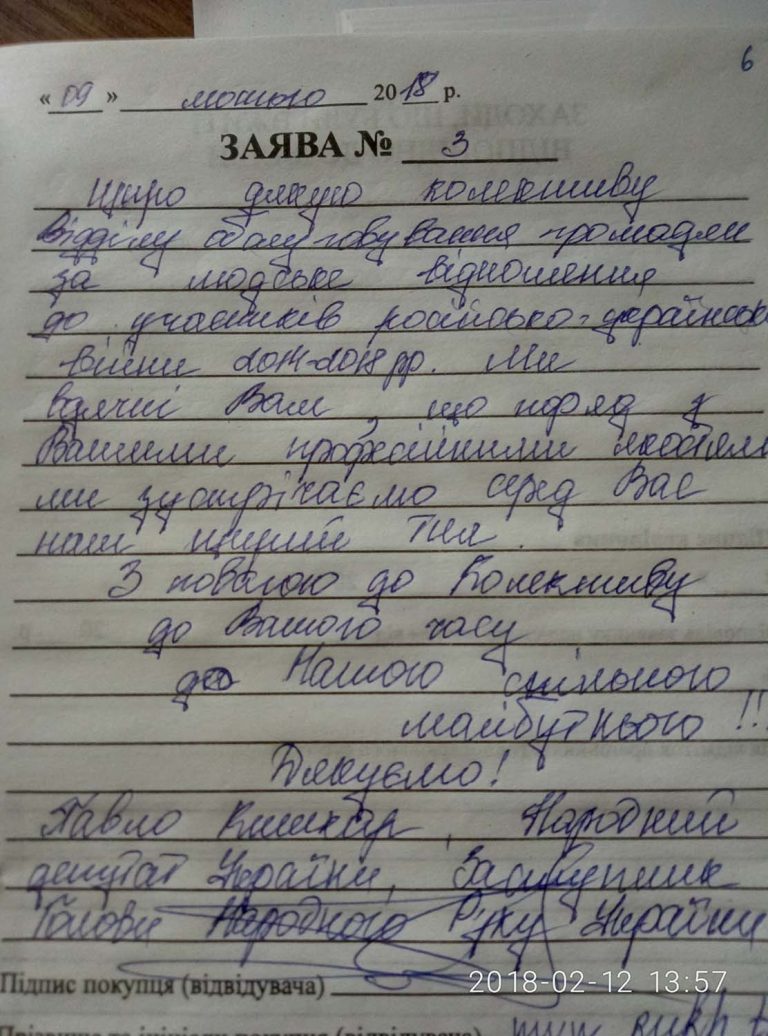 6
« 09 » лютого 2018 р.
ЗАЯВА № 3
Щиро дякую колективу
Відділу обслуговування громадян
за людське відношення
до учасників російсько-українськ
війни 2014-2018 рр. Ми
вдячні Вам, що поряд з
Вашими професійними якостями
ми зустрічаємо серед Вас
наш щирий Тил.
З повагою до Колективу
до Вашого часу
до Нашого спільного
майбутнього !!!
Дякуємо!
Павло Кишкар, Народний
депутат України, Заступник
Голови Народного Руху України
Підпис покупця (відвідувача)
2018-02-12 13:57